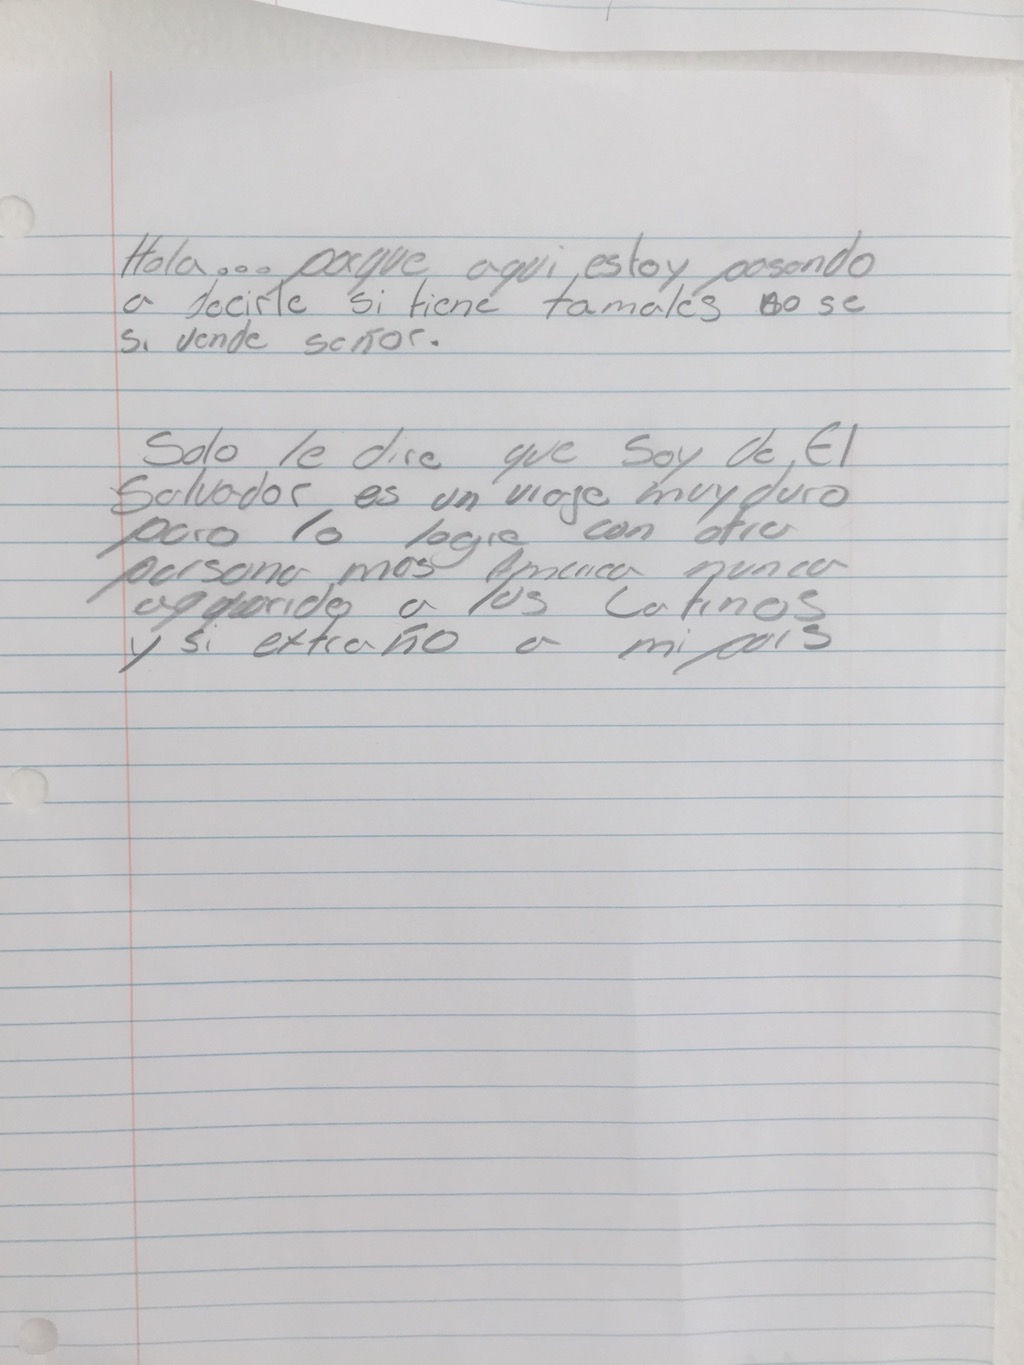 Hola... porque aqui estoy pasando
a decirle si tiene tamales no se
si vende señor.
Solo le dire que soy de El
Salvador es un viaje muy duro
pero lo logre con otra
persona mas America nunca
a querido a los Latinos
y si extraño a mi pais